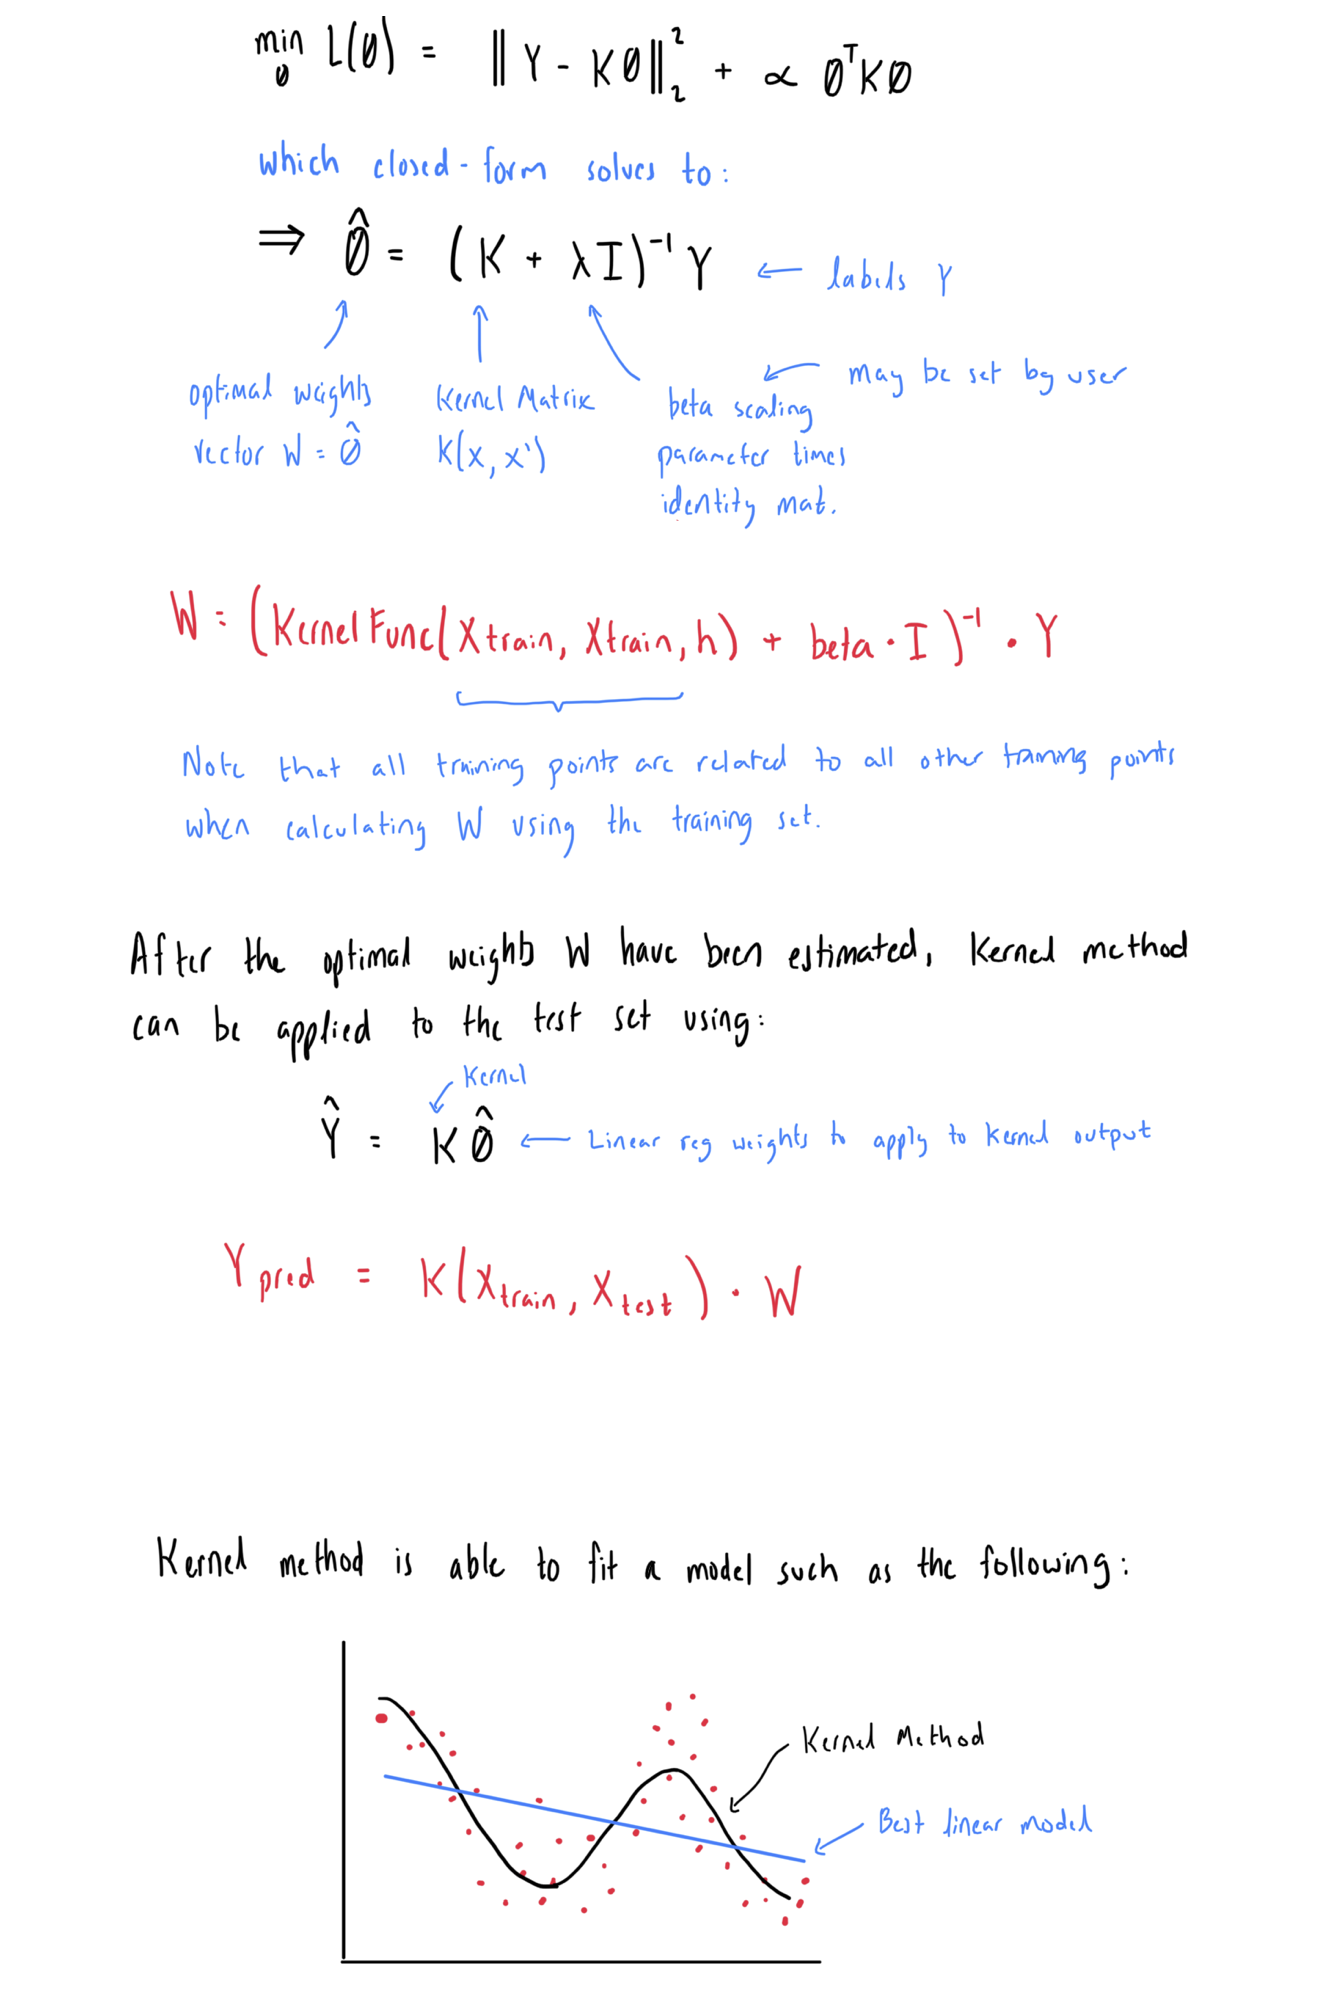 min L(θ) = ‖Y - Kθ‖₂² + α θᵀKθ
θ
which closed-form solves to:
⇒ θ̂ = (K + λI)⁻¹ Y ← labels Y
may be set by user
optimal weights
vector W = θ̂
Kernel Matrix
K(x, x')
beta scaling
parameter times
identity mat.
W = (KernelFunc(Xtrain, Xtrain, h) + beta · I)⁻¹ · Y
Note that all training points are related to all other training points
when calculating W using the training set.
After the optimal weights W have been estimated, Kernel method
can be applied to the test set using:
Kernel
Ŷ = K θ̂ ← Linear reg weights to apply to kernel output
Y pred = K(Xtrain, Xtest) · W
Kernel method is able to fit a model such as the following:
Kernel Method
Best linear model